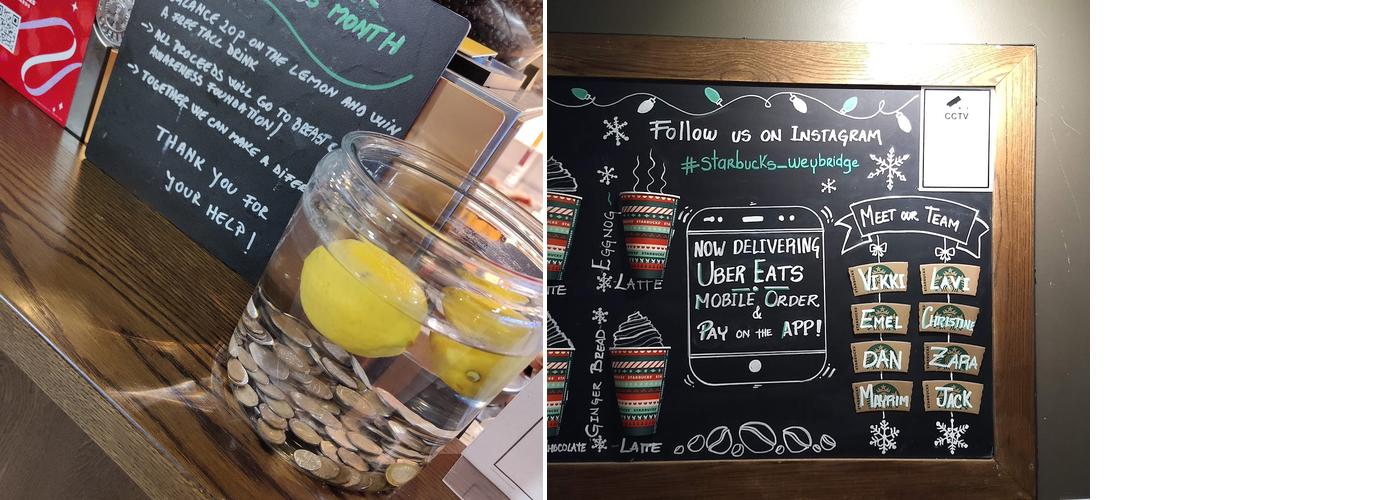 MONTH
BALANCE 20P ON THE LEMON AND WIN
A FREE TALL DRINK
→ ALL PROCEEDS WILL GO TO BREAST
AWARENESS FOUNDATION)
→ TOGETHER WE CAN MAKE A
THANK YOU FOR
YOUR HELP!
CCTV
Follow us on Instagram
#Starbucks_weybridge
EGGNOG
LATTE
GINGER BREAD
LATTE
NOW DELIVERING
UBER EATS
MOBILE ORDER
&
PAY ON THE APP!
MEET OUR TEAM
VIKKI LAVI
EMEL CHRISTINE
DAN ZARA
MAYRIM JACK